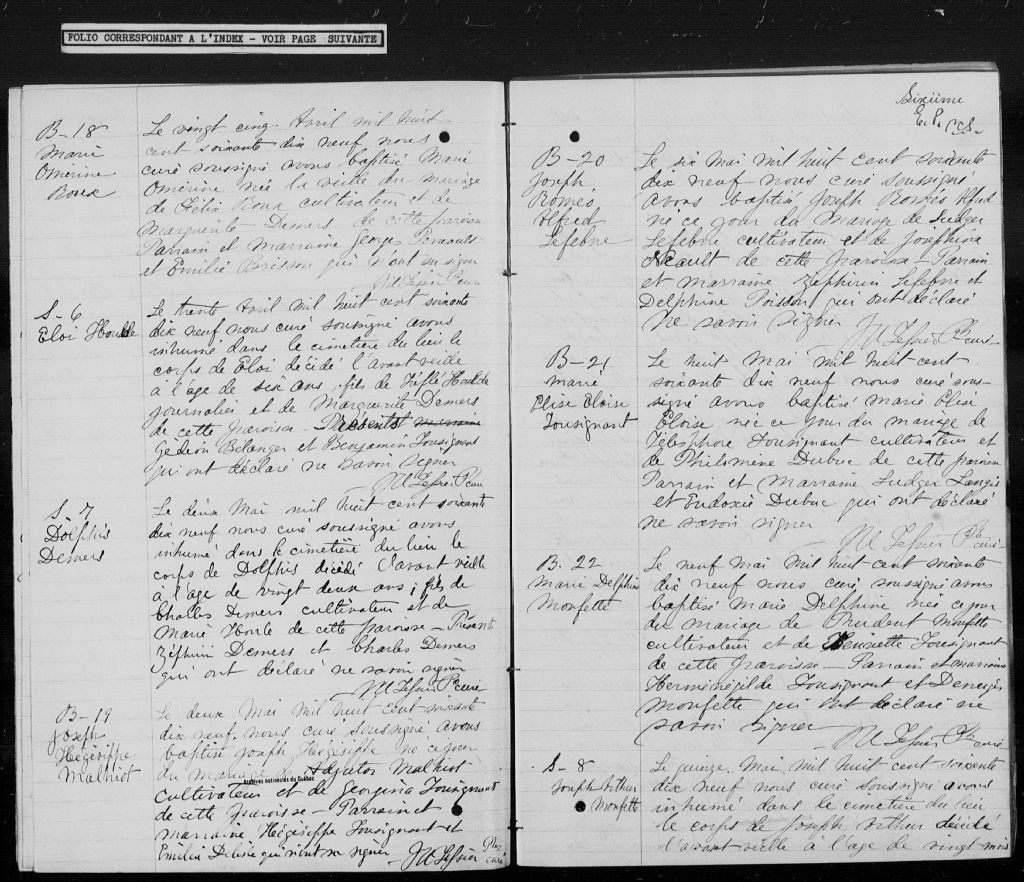 FOLIO CORRESPONDANT A L'INDEX - VOIR PAGE SUIVANTE
B-18
Marie
Omérine
Roux
Le vingt cinq Avril mil huit
cent soixante dix neuf nous
curé soussigné avons baptisé Marie
Omérine née la veille du mariage
de Félix Roux cultivateur et de
Marguerite Demers de cette paroisse
Parrain et Marraine Georges Perreault
et Emilie Brisson qui n'ont su signer
Ptre curé
S-6
Eloi Houlde
Le trente Avril mil huit cent soixante
dix neuf nous curé soussigné avons
inhumé dans le cimetière du lieu le
corps de Eloi décédé l'avant veille
à l'age de six ans, fils de Houlde
journalier et de Marguerite Demers
de cette paroisse - Présents
Gédéon Bélanger et Benjamin Tousignant
qui ont déclaré ne savoir signer
Ptre curé
S-7
Dolphis
Demers
Le deux Mai mil huit cent soixante
dix neuf nous curé soussigné avons
inhumé dans le cimetière du lieu le
corps de Dolphis décédé l'avant veille
à l'age de vingt deux ans, fils de
Charles Demers cultivateur et de
Marie Houle de cette paroisse - Présents
Zéphirin Demers et Charles Demers
qui ont déclaré ne savoir signer
Ptre curé
B-19
Joseph
Hégésippe
Malhiot
Le deux Mai mil huit cent soixante
dix neuf, nous curé soussigné avons
baptisé Joseph Hégésippe né ce jour
du mariage de Malhiot
Archives nationales du Québec
cultivateur et de Georgina Tousignant
de cette paroisse - Parrain et
marraine Hégésippe Tousignant et
Emilia Delisle qui n'ont su signer
Ptre curé
Sixième
B-20
Joseph
Roméo
Alfred
Lefebvre
Le six Mai mil huit cent soixante
dix neuf nous curé soussigné
avons baptisé Joseph Roméo Alfred
né ce jour du mariage de Ludger
Lefebvre cultivateur et de Joséphine
de cette paroisse - Parrain
et marraine Zéphirin Lefebvre et
Delphine Poisson qui ont déclaré
ne savoir signer
Ptre curé
B-21
Marie
Elise Eloise
Tousignant
Le huit Mai mil huit cent
soixante dix neuf nous curé sous-
signé avons baptisé Marie Elise
Eloise née ce jour du mariage de
Télesphore Tousignant cultivateur et
de Philomène Dubuc de cette paroisse
Parrain et Marraine Ludger Langis
et Eudoxie Dubuc qui ont déclaré
ne savoir signer
Ptre curé
B. 22
Marie Delphine
Monfette
Le neuf Mai mil huit cent soixante
dix neuf nous curé soussigné avons
baptisé Marie Delphine née ce jour
du mariage de Prudent Monfette
cultivateur et de Henriette Tousignant
de cette paroisse - Parrain et marraine
Herménégilde Tousignant et
Monfette qui ont déclaré ne
savoir signer
Ptre curé
S-8
Joseph Arthur
Monfette
Le quinze Mai mil huit cent soixante
dix neuf nous curé soussigné avons
inhumé dans le cimetière du lieu
le corps de Joseph Arthur décédé
l'avant veille à l'age de vingt mois